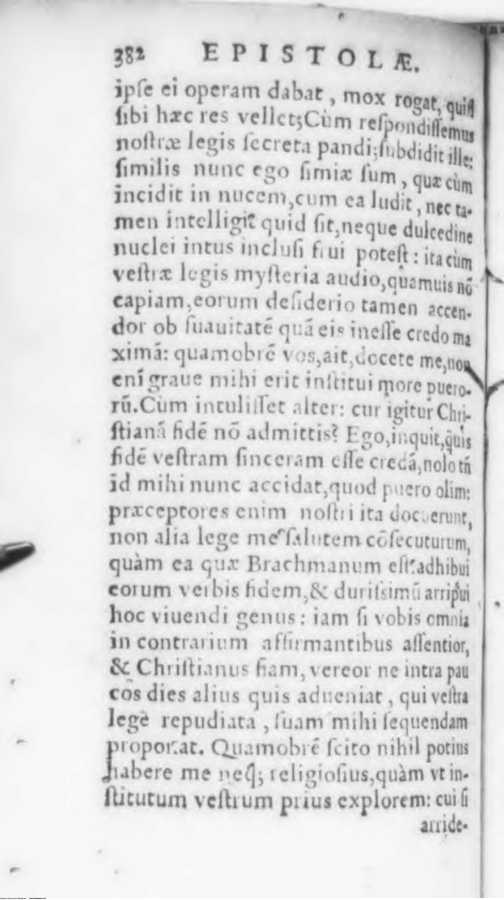 382 EPISTOLÆ.
ipſe ei operam dabat, mox rogat, quid
ſibi hæc res vellet; Cùm reſpondiſſemus
noſtræ legis ſecreta pandi; ſubdidit ille:
ſimilis nunc ego ſimiæ ſum, quæ cùm
incidit in nucem, cum ea ludit, nec ta-
men intelligit quid ſit, neque dulcedine
nuclei intus incluſi frui poteſt: ita cùm
veſtræ legis myſteria audio, quamuis nō
capiam, eorum deſiderio tamen accen-
dor ob ſuauitatē quā eis ineſſe credo ma
ximā: quamobrē vos, ait, docete me, non
enī graue mihi erit inſtitui more puero-
rū. Cùm intuliſſet alter: cur igitur Chri-
ſtianā fidē nō admittis? Ego, inquit, q̃uis
fidē veſtram ſinceram eſſe credā, nolo tñ
id mihi nunc accidat, quod puero olim:
præceptores enim noſtri ita docuerunt,
non alia lege me ſalutem cōſecuturum,
quàm ea quæ Brachmanum eſt: adhibui
eorum verbis fidem, & duriſsimū arripui
hoc viuendi genus: iam ſi vobis omnia
in contrarium affirmantibus aſſentior,
& Chriſtianus fiam, vereor ne intra pau
cos dies alius quis adueniat, qui veſtra
legē repudiata, ſuam mihi ſequendam
proponat. Quamobrē ſcito nihil potius
habere me neq; religioſius, quàm vt in-
ſtitutum veſtrum prius explorem: cui ſi
arride-